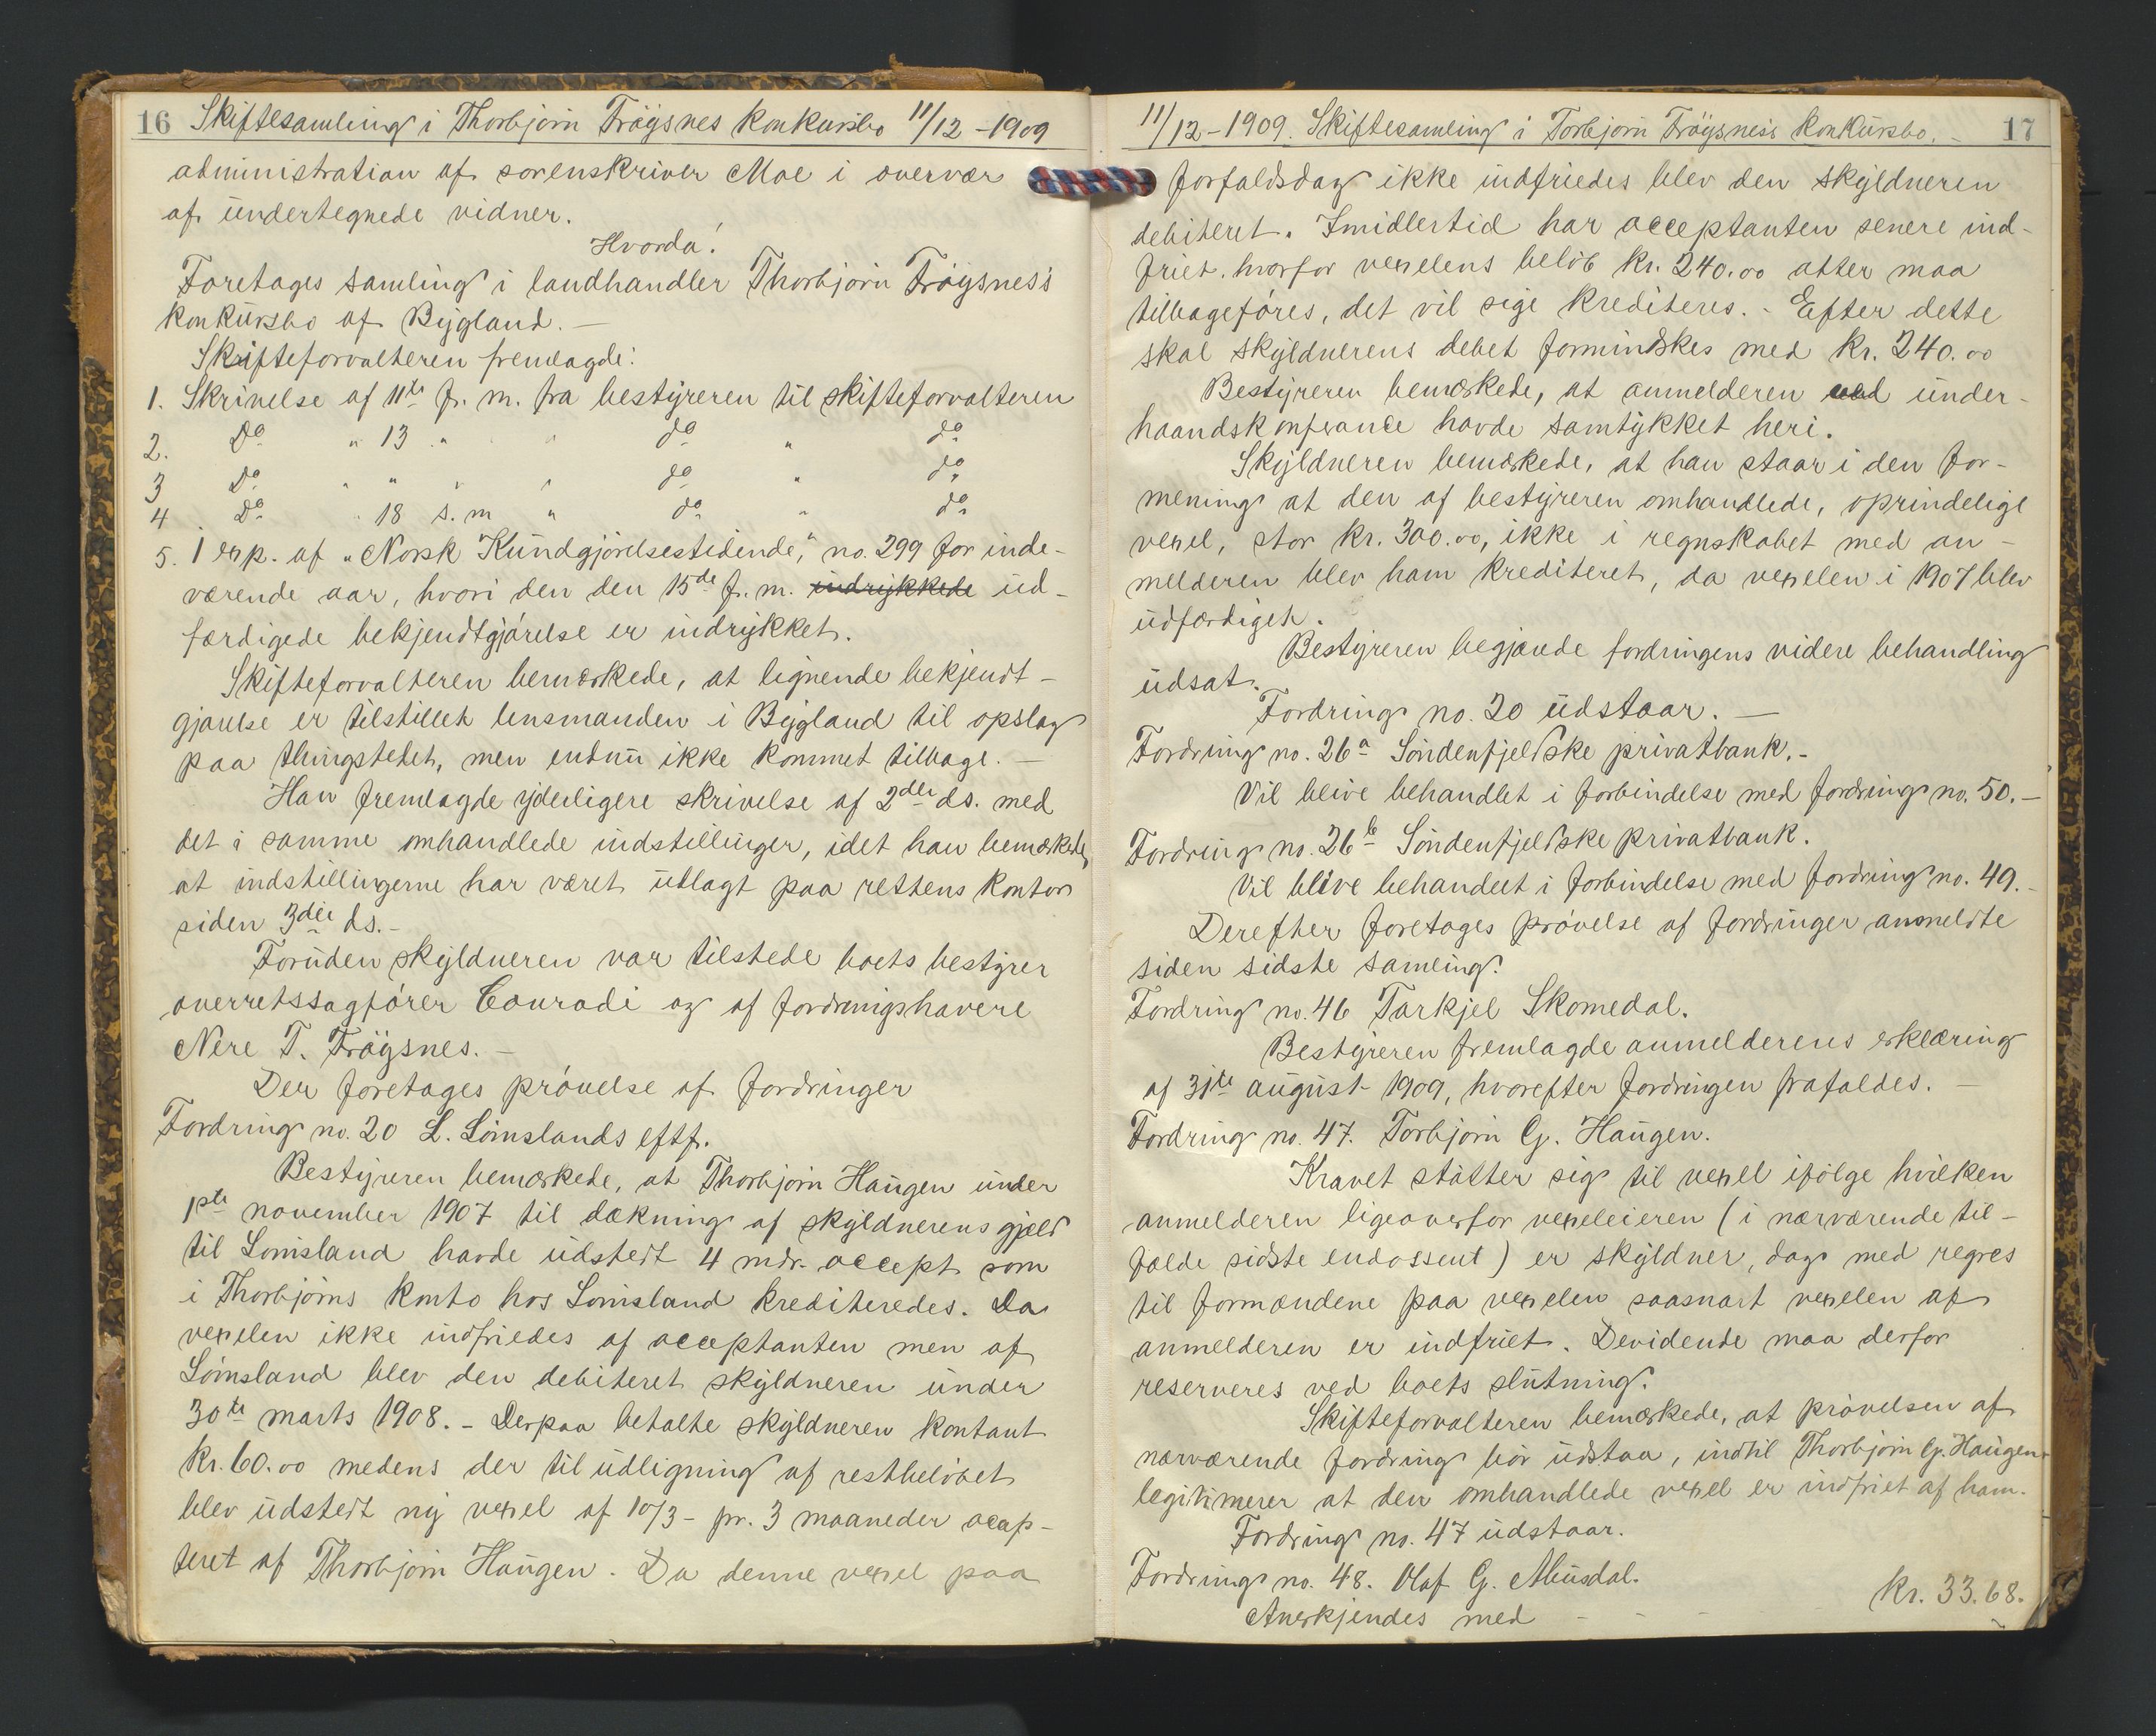 16 Skiftesamling i Thorbjörn Fröysnes konkursbo 11/12-1909
administration af sorenskriver Moe i overvær
af undertegnede vidner.
Hvorda!
Foretages samling i landhandler Thorbjörn Fröysnes's
konkursbo af Bygland. —
Skifteforvalteren fremlagde:
1. Skrivelse af 11te f. m. fra bestyreren til skifteforvalteren
2. Do " 13 " " do " do
3 Do " " " " do " do
4 Do " 18 s. m " do " do
5. 1 exp. af "Norsk Kundgjörelsestidende," no. 299 for inde-
værende aar, hvori den den 15de f. m. indrykkede ud-
færdigede bekjendtgjörelse er indrykket.
Skifteforvalteren bemærkede, at lignende bekjendt-
gjørelse er tilstillet lensmanden i Bygland til opslag
paa thingstedet, men endnu ikke kommet tilbage. —
Han fremlagde yderligere skrivelse af 2den ds. med
det i samme omhandlede indstillinger, idet han bemærkede,
at indstillingerne har været udlagt paa rettens kontor
siden 3die ds. -
Foruden skyldneren var tilstede boets bestyrer
overretssagförer Conradi og af fordringshavere
Nere T. Fröysnes. —
Der foretages prövelse af fordringer
Fordring no. 20 L. Lömslands eftf.
Bestyreren bemærkede, at Thorbjörn Haugen under
1ste november 1907 til dækning af skyldnerens gjæld
til Lömsland havde udstedt 4 mdr. accept som
i Thorbjörns konto hos Lömsland krediteredes. Da
vexelen ikke indfriedes af acceptanten men af
Lömsland blev den debiteret skyldneren under
30te marts 1908. - Derpaa betalte skyldneren kontant
kr. 60.00 medens der til udligning af restbelöbet
blev udstedt ny vexel af 10/3 - pr. 3 maaneder accep-
teret af Thorbjörn Haugen. Da denne vexel paa
11/12-1909. Skiftesamling i Torbjörn Fröysnes's konkursbo. - 17
forfaldsdag ikke indfriedes blev den skyldneren
debiteret. Imidlertid har acceptanten senere ind-
friet. hvorfor vexelens belöb kr. 240.00 atter maa
tilbageföres, det vil sige krediteres. - Efter dette
skal skyldnerens debet formindskes med kr. 240.00
Bestyreren bemærkede, at anmelderen ved under-
haandskonferance havde samtykket heri.
Skyldneren bemærkede, at han staar i den for-
mening at den af bestyreren omhandlede, oprindelige
vexel, stor kr. 300.00, ikke i regnskabet med an-
melderen blev ham krediteret, da vexelen i 1907 blev
udfærdiget.
Bestyreren begjærede fordringens videre behandling
udsat.
Fordring no. 20 udstaar. —
Fordring no. 26a Söndenfjeldske privatbank. -
Vil blive behandlet i forbindelse med fordring no. 50. —
Fordring no. 26b Söndenfjeldske privatbank.
Vil blive behandlet i forbindelse med fordring no. 49. -
Derefter foretages prövelse af fordringer anmeldte
siden sidste samling:
Fordring no. 46 Tarkjel Skomedal.
Bestyreren fremlagde anmelderens erklæring
af 31te august 1909, hvorefter fordringen frafaldes. —
Fordring no. 47. Torbjörn G. Haugen.
Kravet stötter sig til vexel ifölge hvilken
anmelderen ligeoverfor vexeleieren (i nærværende til-
fælde sidste endossent) er skyldner, dog med regres
til formændene paa vexelen saasnart vexelen af
anmelderen er indfriet. Devidende maa derfor
reserveres ved boets slutning.
Skifteforvalteren bemærkede, at prövelsen af
nærværende fordring bör udstaa, indtil Thorbjörn G. Haugen
legitimerer at den omhandlede vexel er indfriet af ham.
Fordring no. 47 udstaar.
Fordring no. 48. Olaf G. Musdal.
Anerkjendes med - - - kr. 33.68.